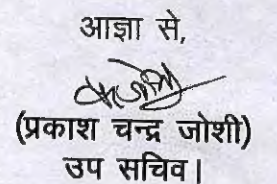 आज्ञा से,
(प्रकाश चन्द्र जोशी)
उप सचिव।